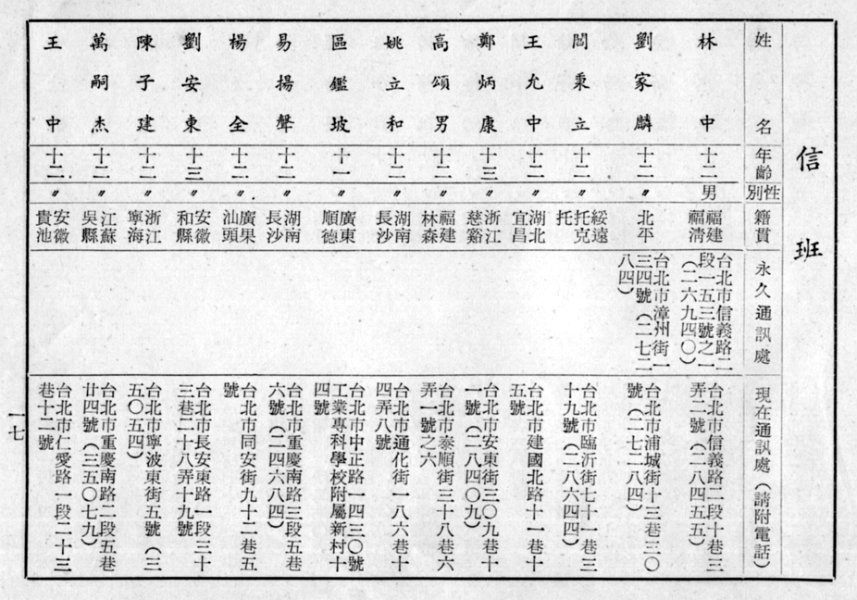 信班
姓名 年齡 性別 籍貫 永久通訊處 現在通訊處（請附電話）
林中 十二 男 福建福清 台北市信義路二段一五三號之一（二六九四〇） 台北市信義路二段十巷三弄二號（二八四五五）
劉家麟 十二 〃 北平 台北市漳州街一三四號（二七二八四） 台北市浦城街十三巷三〇號（二七二八四）
閻秉立 十二 〃 綏遠托克托 台北市臨沂街七十一巷三十九號（二八六四四）
王允中 十二 〃 湖北宜昌 台北市建國北路十一巷十五號
鄭炳康 十三 〃 浙江慈谿 台北市安東街三〇九巷十一號（二八四〇九）
高頌男 十二 〃 福建林森 台北市泰順街三十八巷六弄一號之六
姚立和 十二 〃 湖南長沙 台北市通化街一八六巷十四弄八號
區鑑坡 十一 〃 廣東順德 台北市中正路一四三〇號工業專科學校附屬新村十四號
易揚聲 十二 〃 湖南長沙 台北市重慶南路三段五巷六號（二四六八四）
楊全 十二 〃 廣果汕頭 台北市同安街九十二巷五號
劉安東 十三 〃 安徽和縣 台北市長安東路一段三十三巷二十八弄十九號
陳子建 十二 〃 浙江寧海 台北市寧波東街五號（三五〇五四）
萬嗣杰 十二 〃 江蘇吳縣 台北市重慶南路二段五巷廿四號（三五〇七九）
王中 十二 〃 安徽貴池 台北市仁愛路一段二十三巷十二號
一七